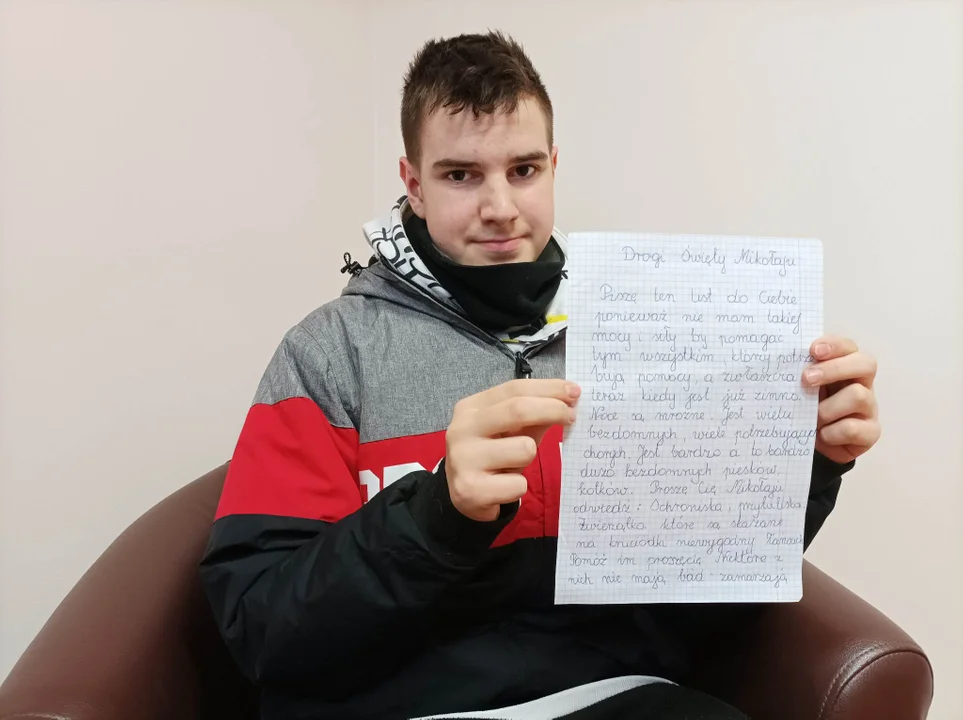 Drogi Święty Mikołaju
Piszę ten list do Ciebie
ponieważ nie mam takiej
mocy i siły by pomagać
tym wszystkim, którzy potrze
bują pomocy, a zwłaszcza
teraz kiedy jest już zimno.
Noce są mroźne. Jest wielu
bezdomnych, wiele potrzebujących
chorych. Jest bardzo a to bardzo
dużo bezdomnych piesków,
kotków. Proszę Cię Mikołaju
odwiedź: Schroniska, przytuliska
Zwierzątka które są skazane
na krótki niewygodny łańcuch
Pomóż im proszę Cię Niektóre z
nich nie mają bud zamarzają